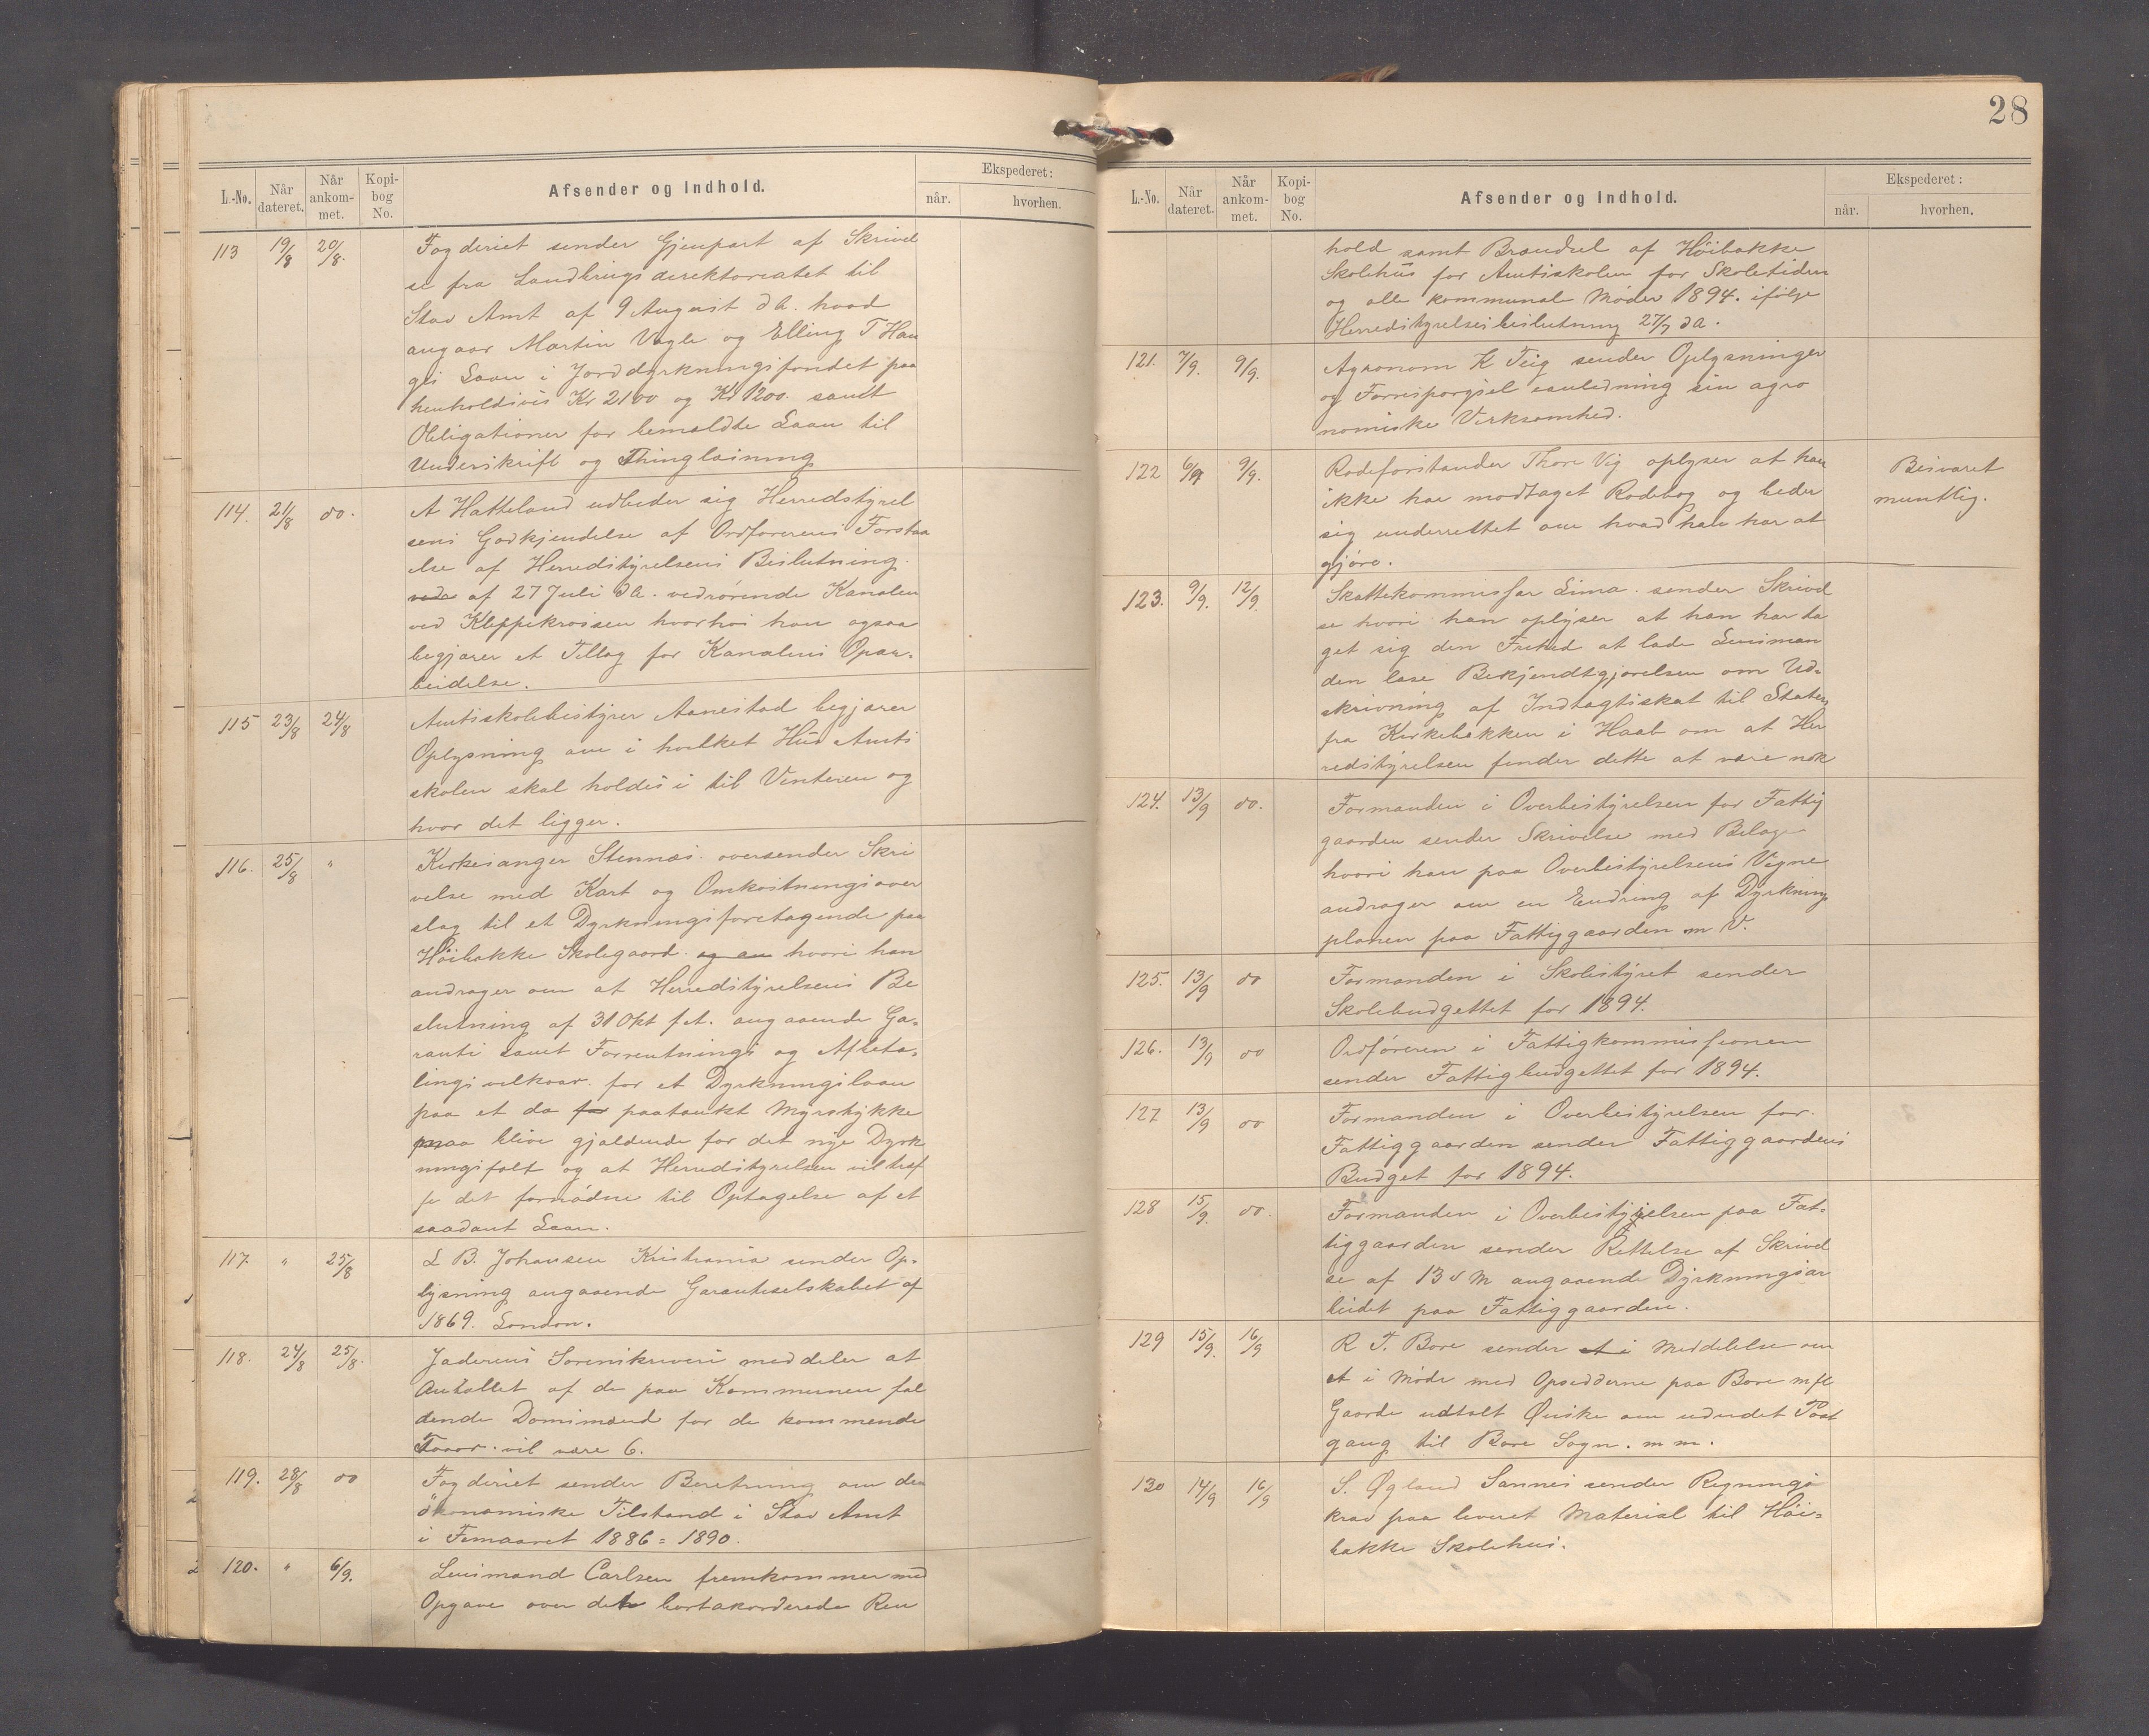 28
L.-No. Når dateret. Når ankommet. Kopibog No. Afsender og Indhold. Ekspederet: når. hvorhen.
113 19/8 20/8. Fogderiet sender Gjenpart af Skrivel
se fra Landbrugsdirektoreatet til
Stav Amt af 9 August d A. hvad
angaar Martin Vagle og Elling T Hau
ges Laan i Jorddyrkningsfondet paa
henholdsvis Kr 2100 og Kr 1200. samt
Obligationer for bemeldte Laan til
Underskrift og Thinglæsning
114. 21/8 do. A Hatteland udbeder sig Herredstyrel
sens Godkjendelse af Ordførerens Forstaa
else af Herredstyrelsens Beslutning
af 27 Juli d A. vedrørende Kanalen
ved Kleppekrossen hvorhos han ogsaa
begjærer et Tillæg for Kanalens Opar-
beidelse.
115 23/8 24/8 Amtsskolebestyrer Aanestad begjærer
Oplysning om i hvilket Hus Amts
skolen skal holdes i til Vinteren og
hvor det ligger.
116. 25/8 " Kirkesanger Stennæs. oversender Skri
velse med Kart og Omkostningsover
slag til et Dyrkningsforetagende paa
Høibakke Skolegaard. og an hvori han
andrager om at Herredstyrelsens Be
slutning af 31 Okt f.A. angaaende Ga-
ranti samt Forrentnings og Afbeta-
lings vilkaar. for et Dyrkningslaan
paa et da for paatænkt Myrstykke
maa blive gjældende for det nye Dyrk
ningsfelt og at Herredstyrelsen vil træf
fe det fornødne til Optagelse af et
saadant Laan.
117. " 25/8 L B. Johansen Kristiania sender Op-
lysning angaaende Garantiselskabet af
1869. London.
118. 24/8 25/8. Jæderens Sorenskriveri meddeler at
Antallet af de paa Kommunen fal
dende Domsmænd for de kommende
Toaar. vil være 6.
119. 28/8 do Fogderiet sender Beretning om den
økonomiske Tilstand i Stav Amt
i Femaaret 1886=1890.
120. " 6/9. Lensmand Carlsen fremkommer med
Opgave over det bortakorderede Ren
L.-No. Når dateret. Når ankommet. Kopibog No. Afsender og Indhold. Ekspederet: når. hvorhen.
hold samt Brændsel af Høibakke
Skolehus for Amtsskolen for Skoletiden
og alle kommunale Møder 1894. ifølge
Herredstyrelsesbeslutning 27/7 d A.
121. 7/9. 9/9. Agronom K Teig sender Oplysninger
og Forespørgsel sin agro
nomiske Virksomhed.
122 6/9 9/9. Rodeforstander Thore Vig oplyser at han
ikke har modtaget Rodebog og beder
sig underrettet om hvad han har at
gjøre.
Besvaret
muntlig.
123. 9/9. 12/9. Skattekommissær Lima. sender Skrivel
se hvori han oplyser at han har ta
get sig den Frihed at lade Lensman
den læse Bekjendtgjørelsen om Ud-
skrivning af Indtægtsskat til Staten
fra Kirkebakken i Haab om at Her
redstyrelsen finder dette at være nok
124. 13/9 do. Formanden i Overbestyrelsen for Fattig
gaarden sender Skrivelse med Bilage
hvori han paa Overbestyrelsens Vegne
andrager om en Endring af Dyrknings
planen paa Fattiggaarden m V.
125. 13/9 do Formanden i Skolestyret sender
Skolebudgettet for 1894.
126. 13/9 do Ordføreren i Fattigkommissionen
sender Fattigbudgettet for 1894.
127 13/9 do Formanden i Overbestyrelsen for.
Fattiggaarden sender Fattiggaardens
Budget for 1894.
128 15/9. do. Formanden i Overbestyrelsen paa Fat-
tiggaarden sender Rettelse af Skrivel
se af 13 d M angaaende Dyrkningsar
beidet paa Fattiggaarden.
129 15/9. 16/9 R T. Bore sender et i Meddelelse om
et i Møde med Opsidderne paa Bore m fl
Gaarde udtalt Ønske om udvidet Post
gang til Bore Sogn. m m.
130 14/9 16/9 S. Øgland Sannes sender Regnings
krav paa leveret Material til Høi-
bakke Skolehus.